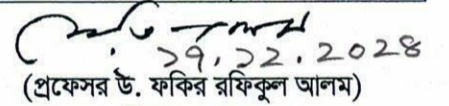 ১৭.১২.২০২৪
(প্রফেসর ড. ফকির রফিকুল আলম)